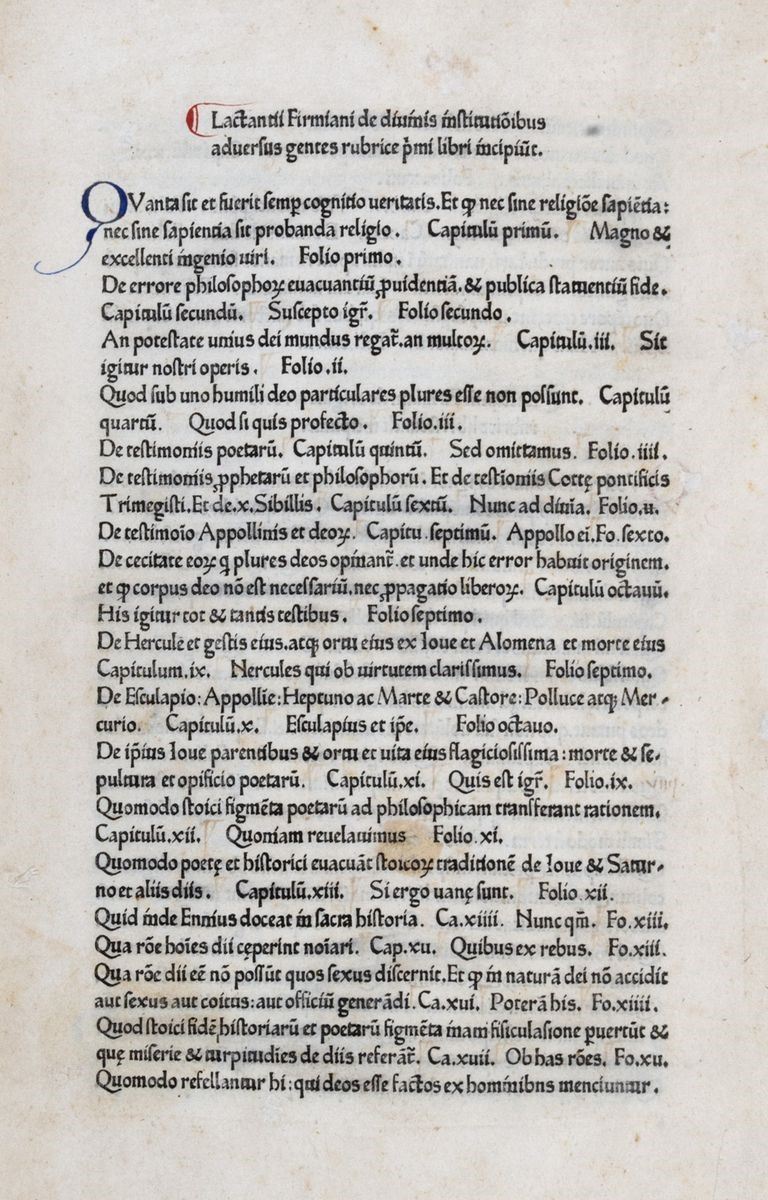 Lactantii Firmiani de diuinis institutiõibus
aduersus gentes rubrice p̃mi libri incipiũt.
QVanta sit et fuerit semꝑ cognitio ueritatis.Et ꝙ nec sine religiõe sapiẽtia:
nec sine sapientia sit probanda religio. Capitulũ primũ. Magno &
excellenti ingenio uiri. Folio primo.
De errore philosophoꝝ euacuantiũ ꝓuidentiã.& publica statuentiũ fide.
Capitulũ secundũ. Suscepto igr̃. Folio secundo.
An potestate unius dei mundus regat̃.an multoꝝ. Capitulũ.iii. Sit
igitur nostri operis. Folio.ii.
Quod sub uno humili deo particulares plures esse non possunt. Capitulũ
quartũ. Quod si quis profecto. Folio.iii.
De testimoniis poetarũ. Capitulũ quintũ. Sed omittamus. Folio.iiii.
De testimoniis ꝓphetarũ et philosophorũ. Et de testĩoniis Cottę pontificis
Trimegisti.Et de.x.Sibillis. Capitulũ sextũ. Nunc ad diuĩa. Folio.u.
De testimoĩo Appollinis et deoꝝ. Capitu.septimũ. Appollo ei.Fo.sexto.
De cecitate eoꝝ q̃ plures deos opinant̃.et unde hic error habuit originem.
et ꝙ corpus deo nõ est necessariũ.nec ꝓpagatio liberoꝝ. Capitulũ octauũ.
His igitur tot & tantis testibus. Folio septimo.
De Hercule et gestis eius.atqꝫ ortu eius ex Ioue et Alomena et morte eius
Capitulum.ix. Hercules qui ob uirtutem clarissimus. Folio septimo.
De Esculapio:Appollĩe:Heptuno ac Marte & Castore:Polluce atqꝫ Mer-
curio. Capitulũ.x. Esculapius et ip̃e. Folio octauo.
De ip̃ius Ioue parentibus & ortu et uita eius flagiciosissima:morte & se-
pultura et opificio poetarũ. Capitulũ.xi. Quis est igr̃. Folio.ix.
Quomodo stoici figmẽta poetarũ ad philosophicam transferant rationem.
Capitulũ.xii. Quoniam reuelauimus Folio.xi.
Quomodo poetę et historici euacuãt stoicoꝝ traditionẽ de Ioue & Satur-
no et aliis diis. Capitulũ.xiii. Si ergo uanę sunt. Folio.xii.
Quid inde Ennius doceat in sacra historia. Ca.xiiii. Nunc qm̃. Fo.xiii.
Qua rõe hoĩes dii cęperint noĩari. Cap.xu. Quibus ex rebus. Fo.xiii.
Qua rõe dii eẽ nõ possũt quos sexus discernit.Et ꝙ in naturã dei nõ accidit
aut sexus aut coitus:aut officiũ generãdi.Ca.xui. Poterã his. Fo.xiiii.
Quod stoici fidẽ historiarũ et poetarũ figmẽta inani fisiculasione ꝑuertũt &
quę miserie & turpitudĩes de diis referãt̃. Ca.xuii. Ob has rões. Fo.xu.
Quomodo refellantur hi:qui deos esse factos ex hominibns menciuntur.